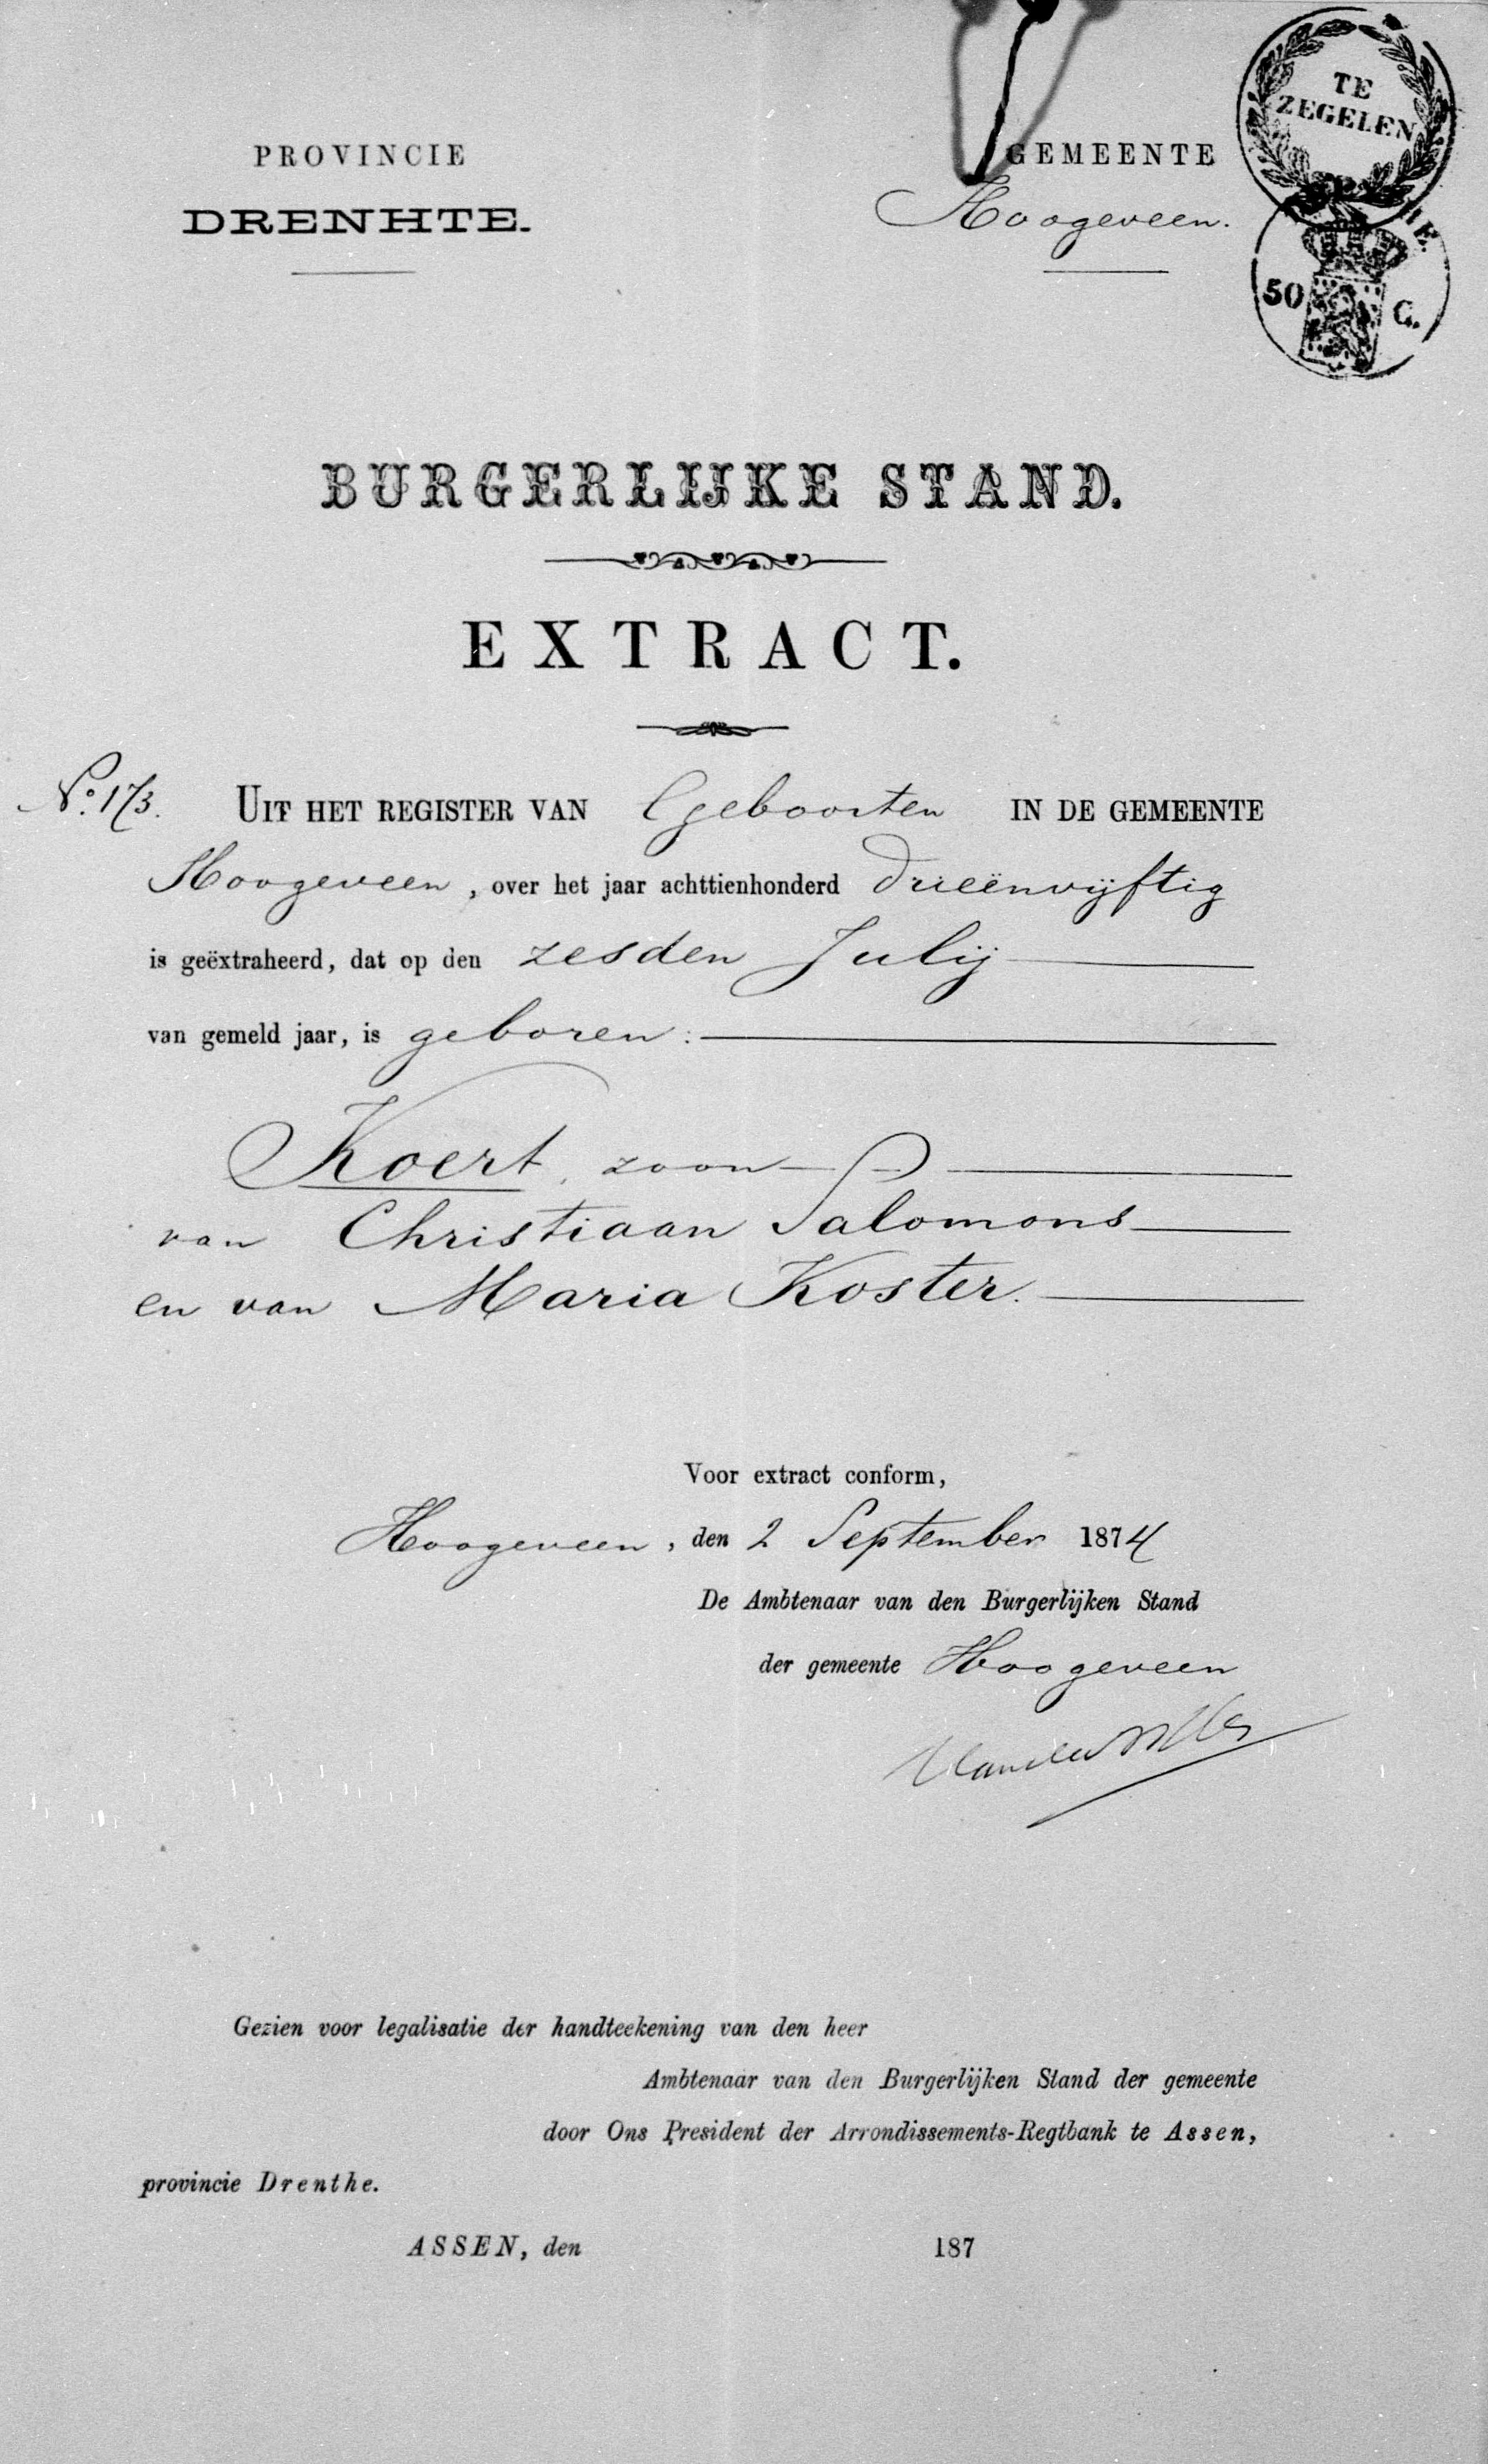 PROVINCIE
DRENHTE.
GEMEENTE
Hoogeveen.
TE
ZEGELEN
50 C.
BURGERLIJKE STAND.
EXTRACT.
No. 173. UIT HET REGISTER VAN Geboorten IN DE GEMEENTE
Hoogeveen, over het jaar achttienhonderd drieënvijftig
is geëxtraheerd, dat op den zesden Julij
van gemeld jaar, is geboren:
Koert, zoon
van Christiaan Salomons
en van Maria Koster.
Voor extract conform,
Hoogeveen, den 2 September 1874
De Ambtenaar van den Burgerlijken Stand
der gemeente Hoogeveen
Gezien voor legalisatie der handteekening van den heer
Ambtenaar van den Burgerlijken Stand der gemeente
door Ons President der Arrondissements-Regtbank te Assen,
provincie Drenthe.
ASSEN, den 187